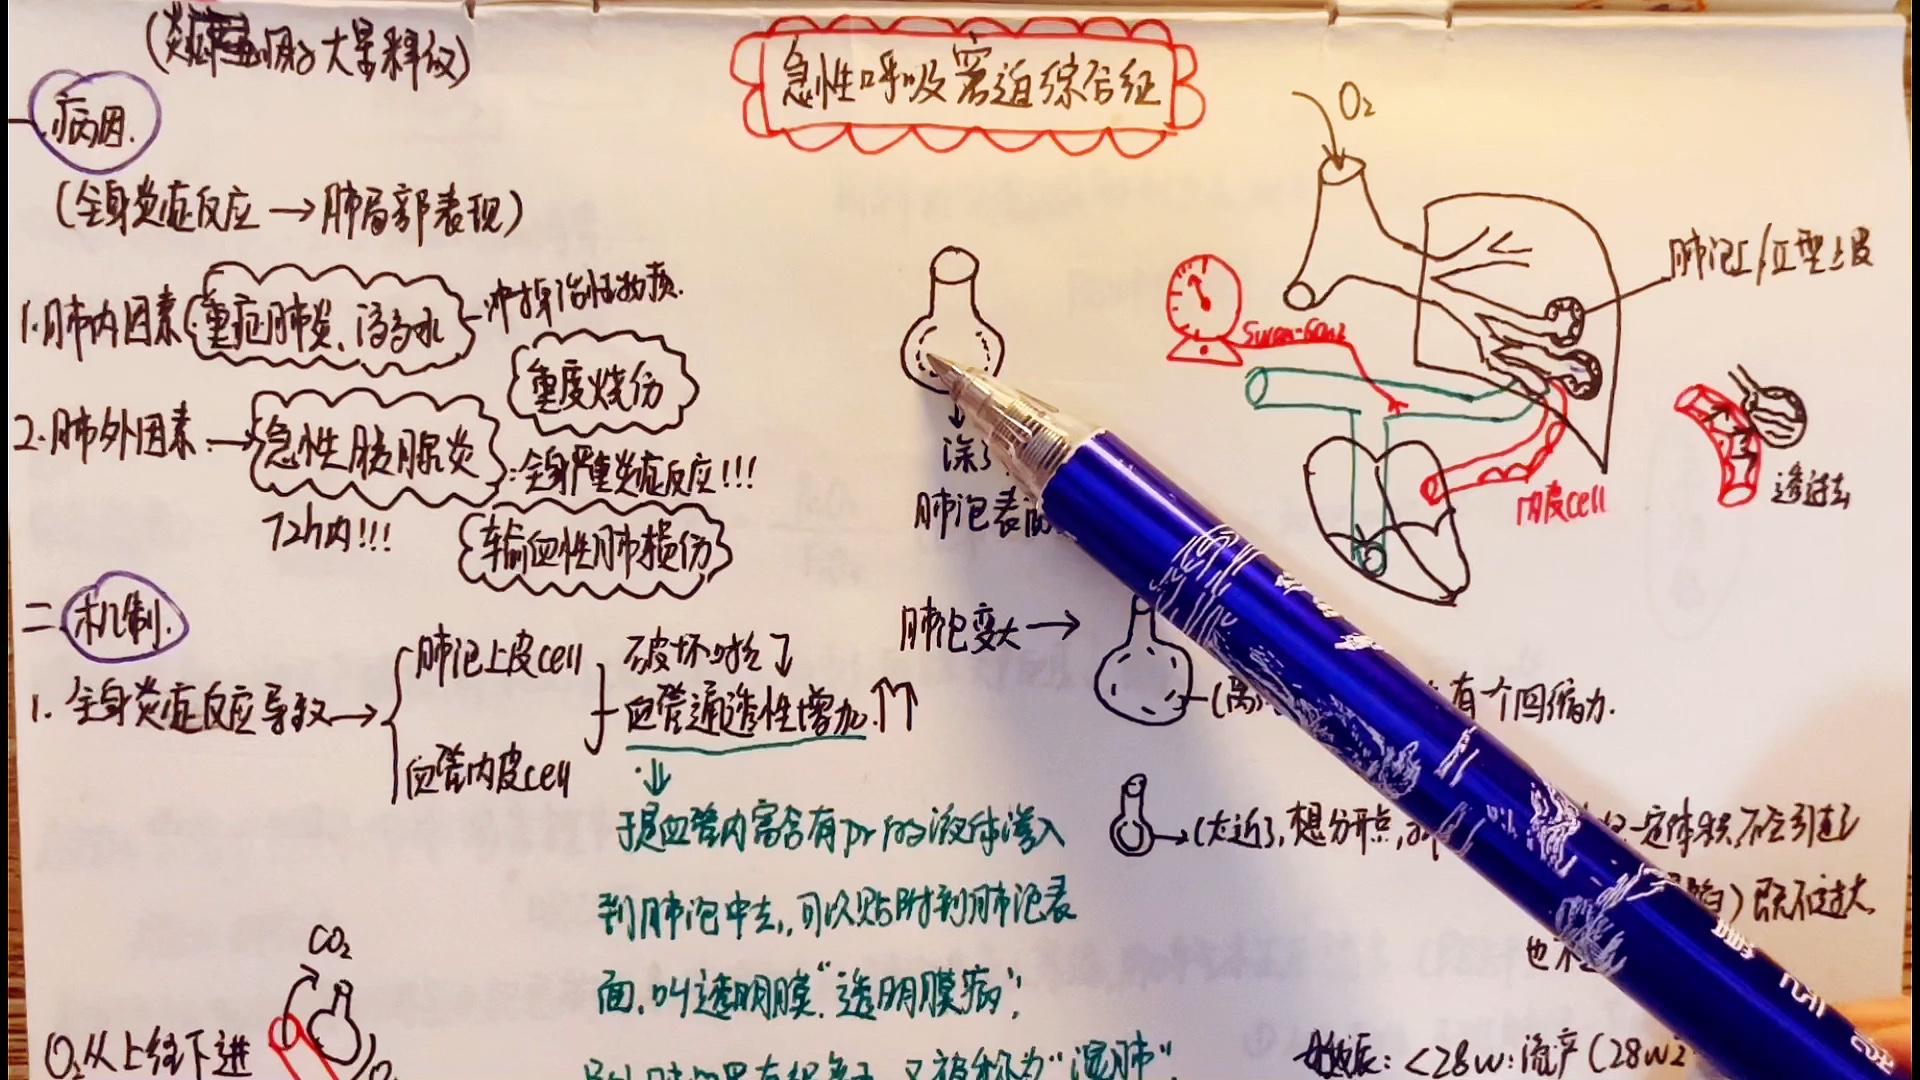 急性呼吸窘迫综合征
病因.
(全身炎症反应→肺局部表现)
1.肺内因素
重症肺炎、溺水
2.肺外因素→
急性胰腺炎
重度烧伤
:全身严重炎症反应!!!
72h内!!!
输血性肺损伤
二
机制.
1. 全身炎症反应导致→
肺泡上皮cell
血管内皮cell
血管通透性增加↑↑
于是血管内富含有pr的液体渗入
到肺泡中去,可以贴附到肺泡表
面,叫透明膜"透明膜病";
"湿肺"
CO₂
O₂从上往下进
O₂
肺泡Ⅰ/Ⅱ型上皮
Swan-Ganz
内皮cell
透过去
涂
肺泡表面
肺泡变大→
有个回缩力.
→(太近了,想分开点,
一定体积,不会引起
既不过大,
也不
<28w:流产(28w≥